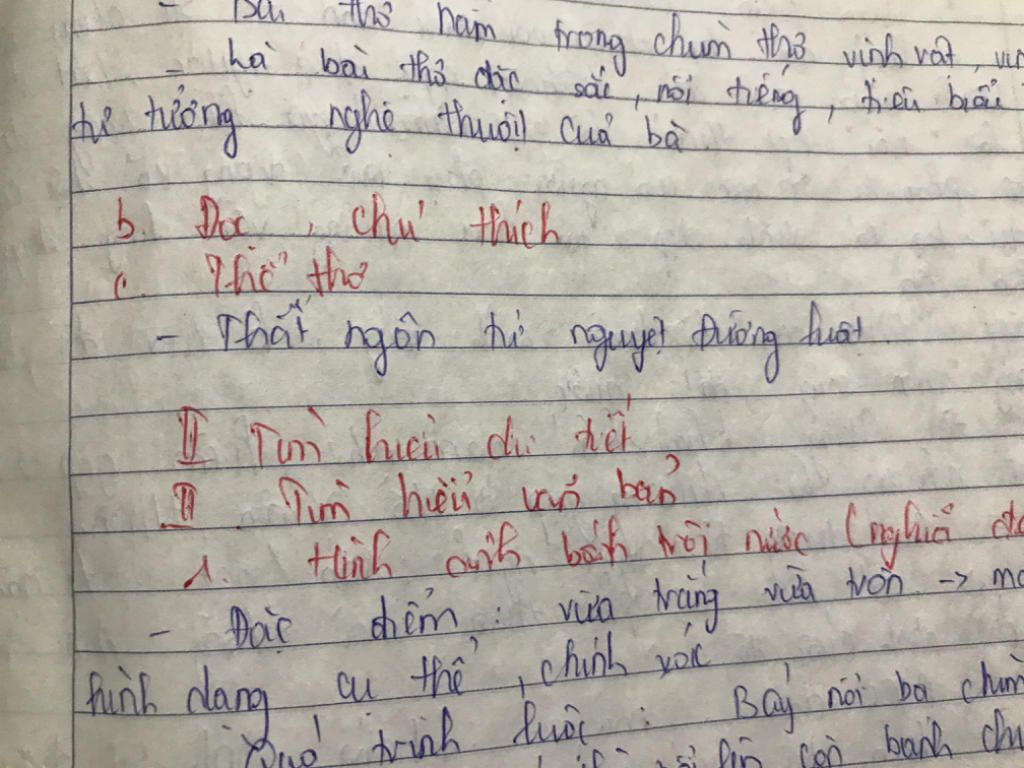 - Bài thơ nằm trong chùm thơ vịnh vật,
- Là bài thơ đặc sắc, nổi tiếng, tiêu biểu
tư tưởng nghệ thuật của bà
b. Đọc, chú thích
c. Thể thơ
- Thất ngôn tứ nguyệt Đường luật
II Tìm hiểu chi tiết
II. Tìm hiểu văn bản
1. Hình ảnh bánh trôi nước (nghĩa
- Đặc điểm: vừa trắng vừa tròn ->
hình dạng cụ thể, chính xác
Quá trình luộc: Bảy nổi ba chìm
bánh